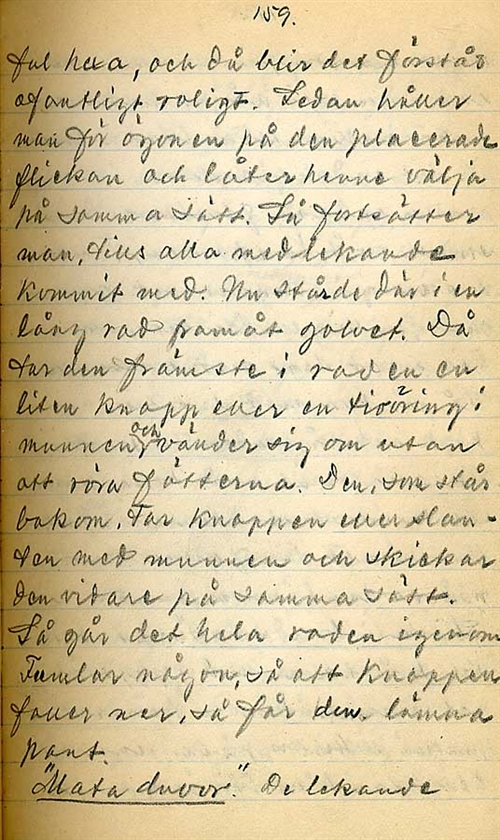 159.
ful hexa, och då blir det förstås
ofantligt roligt. Sedan håller
man för ögonen på den placerade
flickan och låter henne välja
på samma sätt. Så fortsätter
man, tills alla medlekande
kommit med. Nu stå de där i en
lång rad framåt golvet. Då
tar den främste i raden en
liten knapp eller en tioöring i
munnen och vänder sig om utan
att röra fötterna. Den, som står
bakom, tar knappen eller slan-
ten med munnen och skickar
den vidare på samma sätt.
Så går det hela raden igenom
Fumlar någon, så att knappen
faller ner, så får den lämna
pant.
"Mata duvor." De lekande